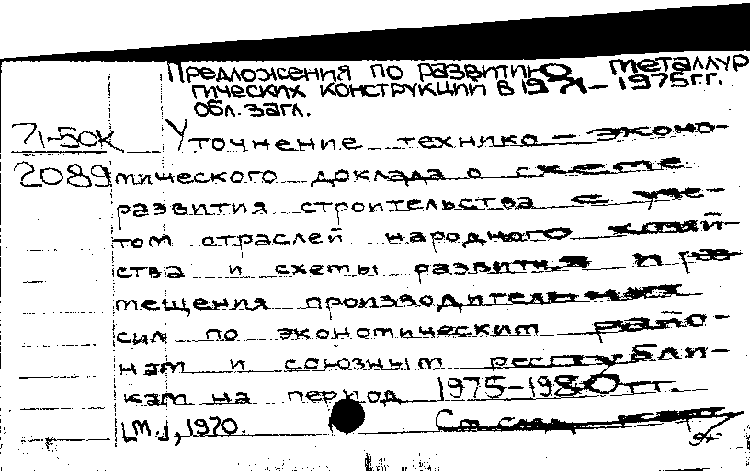 Предложения по развитию металлур
гических конструкции в 1971–1975гг.
Обл. загл.
71-50к Уточнение технико – эконо-
2089 мического доклада о схеме
развития строительства с уче-
том отраслей народного хозяй-
ства и схемы развития и раз-
мещения производительных
сил по экономическим райо-
нам и союзным республи-
кам на период 1975–1980гг.
[М.], 1970. См. след. карт.